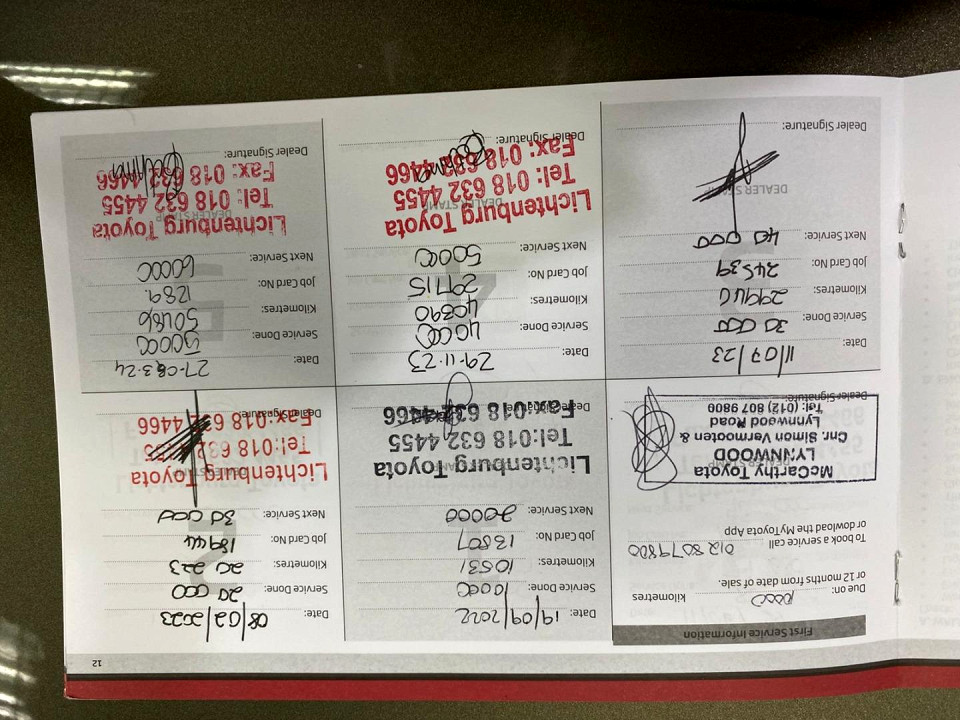 12
First Service Information
Due on: 10000 kilometres
or 12 months from date of sale.
To book a service call 012 8079800
or dowload the MyToyota App
DEALER STAMP
McCarthy Toyota
LYNNWOOD
Cnr. Simon Vermooten &
Lynnwood Road
Tel: (012) 807 9800
Dealer Signature:
Date: 19/09/2022
Service Done:
Kilometres: 10531
Job Card No: 13807
Next Service: 20000
Lichtenburg Toyota
Tel:018 632 4455
Fax:018 632 4466
Dealer Signature:
Date: 08/02/2023
Service Done: 20 000
Kilometres: 20 223
Job Card No: 18944
Next Service: 30 000
DEALER STAMP
Lichtenburg Toyota
Tel:018 632 4455
Fax:018 632 4466
Dealer Signature:
Date: 11/07/23
Service Done: 30 000
Kilometres:
Job Card No: 24539
Next Service: 40 000
DEALER STAMP
Dealer Signature:
4
Date: 29.11.23
Service Done:
Kilometres: 40390
Job Card No: 29715
Next Service: 50000
DEALER STAMP
Lichtenburg Toyota
Tel: 018 632 4455
Fax: 018 632 4466
Dealer Signature:
5
Date:
Service Done: 50000
Kilometres: 50486
Job Card No: 1289
Next Service: 60000
DEALER STAMP
Lichtenburg Toyota
Tel: 018 632 4455
Fax: 018 632 4466
Dealer Signature: